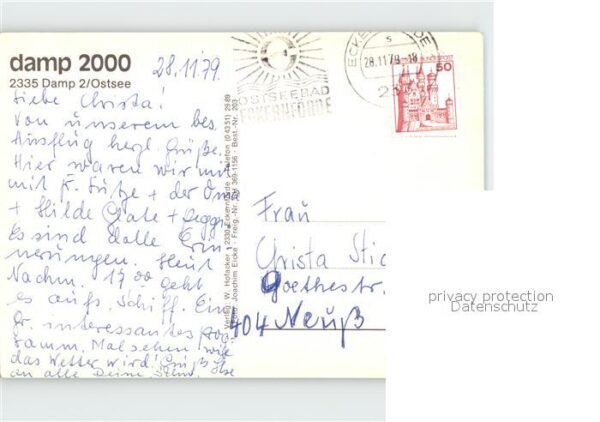 damp 2000
2335 Damp 2/Ostsee
28.11.79
Liebe Christa!
Von unserem bes.
Ausflug herzl. Grüße.
Hier waren wir mit
mit + der Oma
+ Hilde +
Es sind Erin
nerungen. Heut
Nachm. 17 00 geht
es aufs Schiff. Ein
gr. interessantes Pro
gramm. Mal sehen wie
das Wetter wird! Grüß
an alle Deine
OSTSEEBAD
ECKERNFÖRDE
ECKERNFÖRDE
28.11.79-18
BUNDESPOST
50
Verlag W. Hofacker · 2330 Eckernförde · Telefon (0 43 51) 29 89
Foto: Joachim Ecke · Freig.-Nr. 369-1156 · Best.-Nr. 203
Frau
Christa
Goethestr.
404 Neuß
privacy protection
Datenschutz